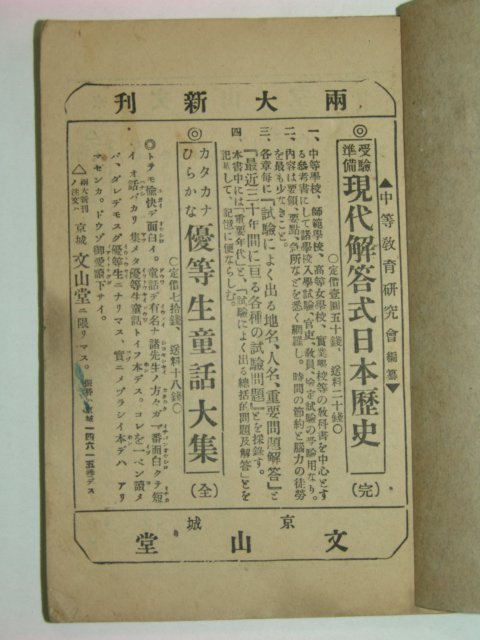 兩大新刊
▲中等敎育硏究會編纂▼
◎受驗準備 現代解答式日本歷史(完)
○定價壹圓五十錢、送料二十錢○
一、中等學校、師範學校、高等女學校、實業學校等の敎科書を中心とす
る參考書にして諸學校入學試驗、官吏、敎員、檢定試驗の受驗用なり。
二、内容は要領、要點、急所などを悉く網羅し、時間の節約と腦力の徒勞
を最も少なきこと。
三、各章毎に『試驗によく出る地名、人名、重要問題解答』と
『最近三十年間に亘る各種の試驗問題』とを採錄す。
四、本書中には『重要年代』と、『試驗によく出る總括的問題及解答』とを
記して、記憶に便ならしむ。
◎カタカナひらかな 優等生童話大集(全)
○定價七拾錢、送料十八錢○
◎トテモ愉快デ面白イ。童話デ有名ナ諸先生ノ方々ガ一番面白クテ短
イオ話バカリ集メタ優等生童話トイフ本デス。コレヲ一ペン讀メ
バ、ダレデモスグ優等生ニナリマス、實ニメヅラシイ本デハアリ
マセンカ。ドウゾ御愛讀下サイ。
△兩大新刊ノ注文ハ 京城 文山堂ニ限リマス。 京城一四六一五番デス
京城
文山堂